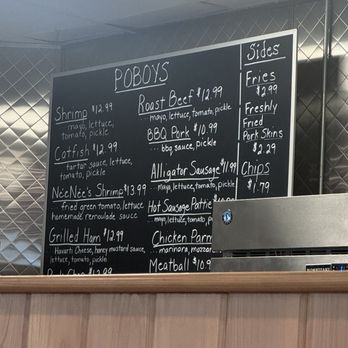 POBOYS
Shrimp $12.99
mayo, lettuce,
tomato, pickle
Catfish $12.99
tartar sauce, lettuce,
tomato, pickle
NeeNee's Shrimp $13.99
fried green tomato, lettuce
homemade remoulade sauce
Grilled Ham $12.99
Havarti Cheese, honey mustard sauce,
lettuce, tomato, pickle
$12.99
Roast Beef $12.99
mayo, lettuce, tomato, pickle
BBQ Pork $10.99
bbq sauce, pickle
Alligator Sausage $11.99
mayo, lettuce, tomato, pickle
Hot Sausage Pattie
mayo, lettuce, tomato, pickle
Chicken Parm
marinara, mozza
Meatball $10.9
Sides
Fries
$2.99
Freshly
Fried
Pork Skins
$2.29
Chips
$1.79